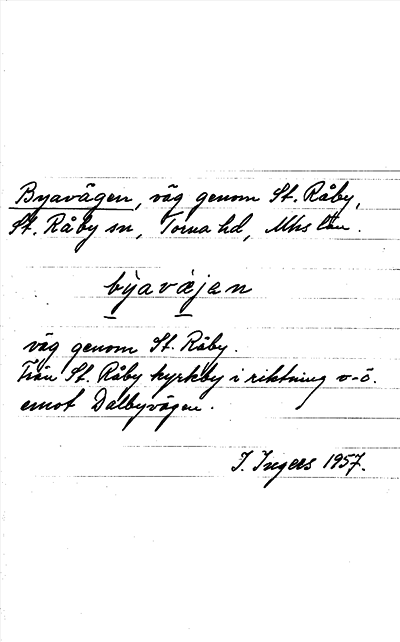 Byavägen, väg genom St. Råby,
St. Råby sn, Torna hd, Mhs län.
bỳavæ̀jan
väg genom St. Råby.
Från St. Råby kyrkby i riktning v-ö.
emot Dalbyvägen.
I. Ingers 1957.